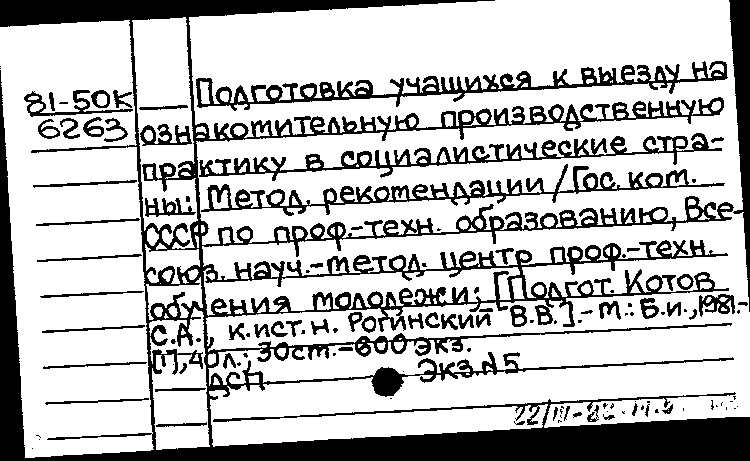 81-50К
6263
Подготовка учащихся к выезду на
ознакомительную производственную
практику в социалистические стра-
ны: Метод. рекомендации / Гос. ком.
СССР по проф.-техн. образованию, Все-
союз. науч.-метод. центр проф.-техн.
обучения молодежи; [Подгот. Котов
С.А., к.ист.н. Рогинский В.В.].- М.: Б.и., 1981.-
[1], 40л.; 30см.- 600 экз.
ДСП Экз. N 5
22/III-82